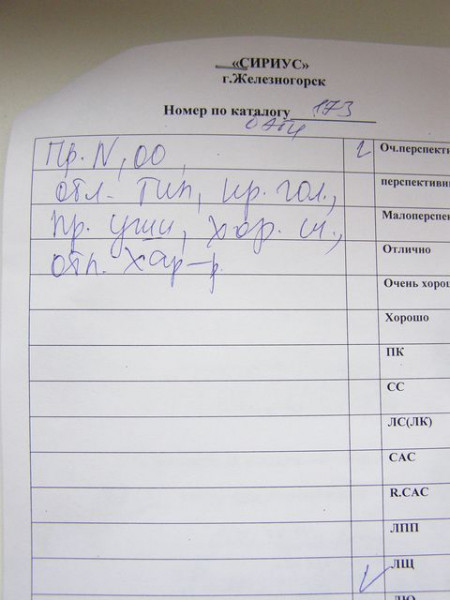 «СИРИУС»
г.Железногорск
Номер по каталогу 173
пр. N, ОО,
отл. тип, кр. гол.,
пр. уши,
отл. хар-р
Оч.перспекти
перспективн
Малоперспек
Отлично
Очень хорош
Хорошо
ПК
СС
ЛС(ЛК)
САС
R.САС
ЛПП
ЛЩ
ЛЮ